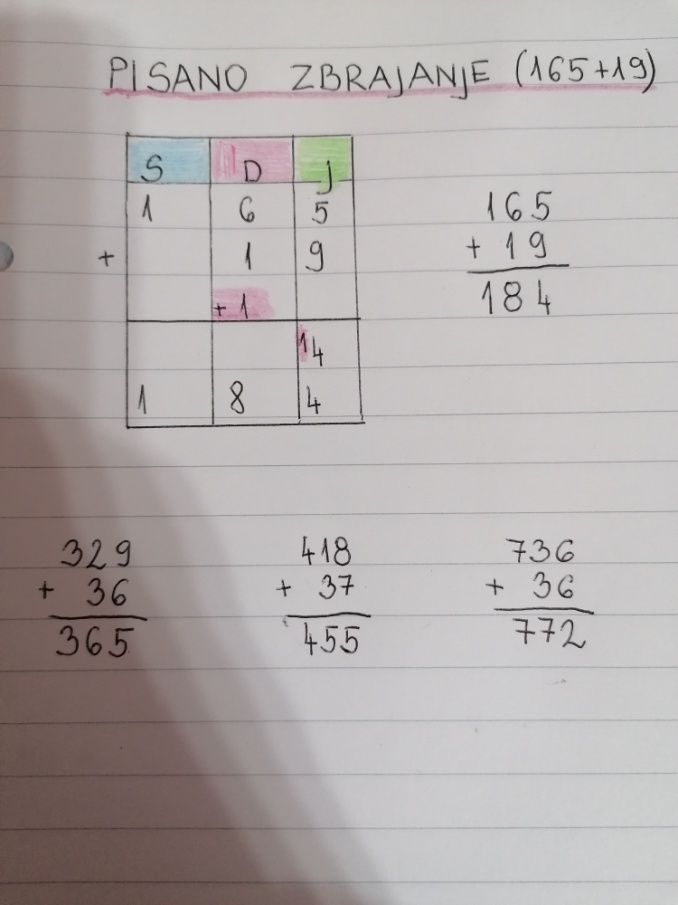 PISANO ZBRAJANJE (165+19)
S D J
1 6 5
+ 1 9
+1
14
1 8 4
165
+ 19
184
329
+ 36
365
418
+ 37
455
736
+ 36
772